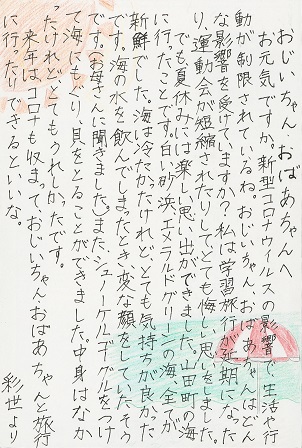 おじいちゃん、おばあちゃんへ
お元気ですか。新型コロナウイルスの影響で、生活や行
動が制限されているね。おじいちゃん、おばあちゃんはどん
な影響を受けていますか？私は学習旅行が延期になった
り、運動会が短縮されたりして、とても悔しい思いをしました。
でも夏休みには楽しい思い出ができました。山田町の海
に行ったことです。白い砂浜、エメラルドグリーンの海、全てが
新鮮でした。海は冷たかったけれど、とても気持ちが良かった
です。海の水を飲んでしまったとき、変な顔をしていたそう
です。お母さんに聞きました。また、シュノーケルゴーグルをつけ
て海にもぐり、貝をとることができました。中身はなか
ったけれど、とてもうれしかったです。
来年は、コロナも収まっておじいちゃん、おばあちゃんと旅行
に行ったりできるといいな。
彩世より